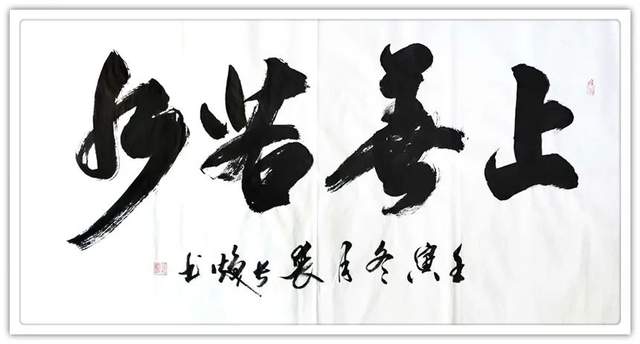 上善若水
壬寅冬月长焕书